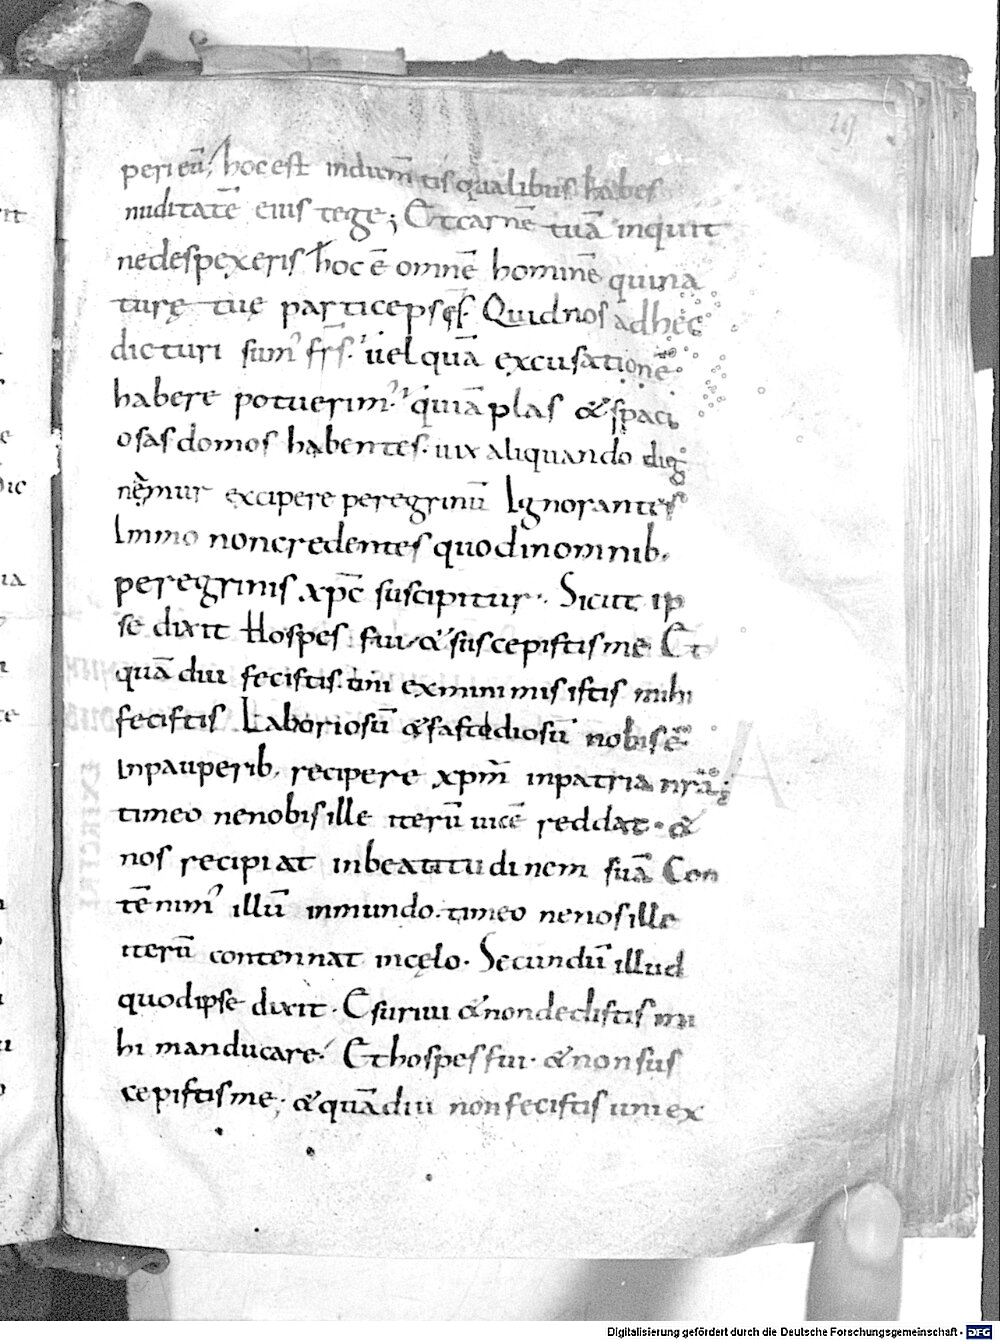 peri eū; hoc est indum̄tis qualibus habes
nuditatē eius tege; Et carnē tuā inquit
ne despexeris hoc ē omnē hominē qui na
turę tuę particeps ē. Quid nos ad hęc
dicturi sum' frs̄. uel quā excusationē
habere poterim'. qui āplas & spaci
osas domos habentes. uix aliquando dig
nemur excipere peregrinū Ignorantes
Immo non credentes quod in omnib.
peregrinis xp̄c suscipitur. Sicut ip
se dixit Hospes fui & suscepistis me Et
quā diu fecistis uni ex minimis istis mihi
fecistis Laboriosū & fastidiosū nobis ē
In pauperib. recipere xpm̄ in patria nr̄a;
timeo ne nobis ille iterū uicē reddat. &
nos recipiat in beatitudinem suā Con
tēnim' illū in mundo. timeo ne nos ille
iterū contennat in cęlo. Secundū illud
quod ipse dixit. Esuriui & non dedistis mi
hi manducare. Et hospes fui. & non sus
cepistis me; & quādiu non fecistis uni ex
Digitalisierung gefördert durch die Deutsche Forschungsgemeinschaft - DFG